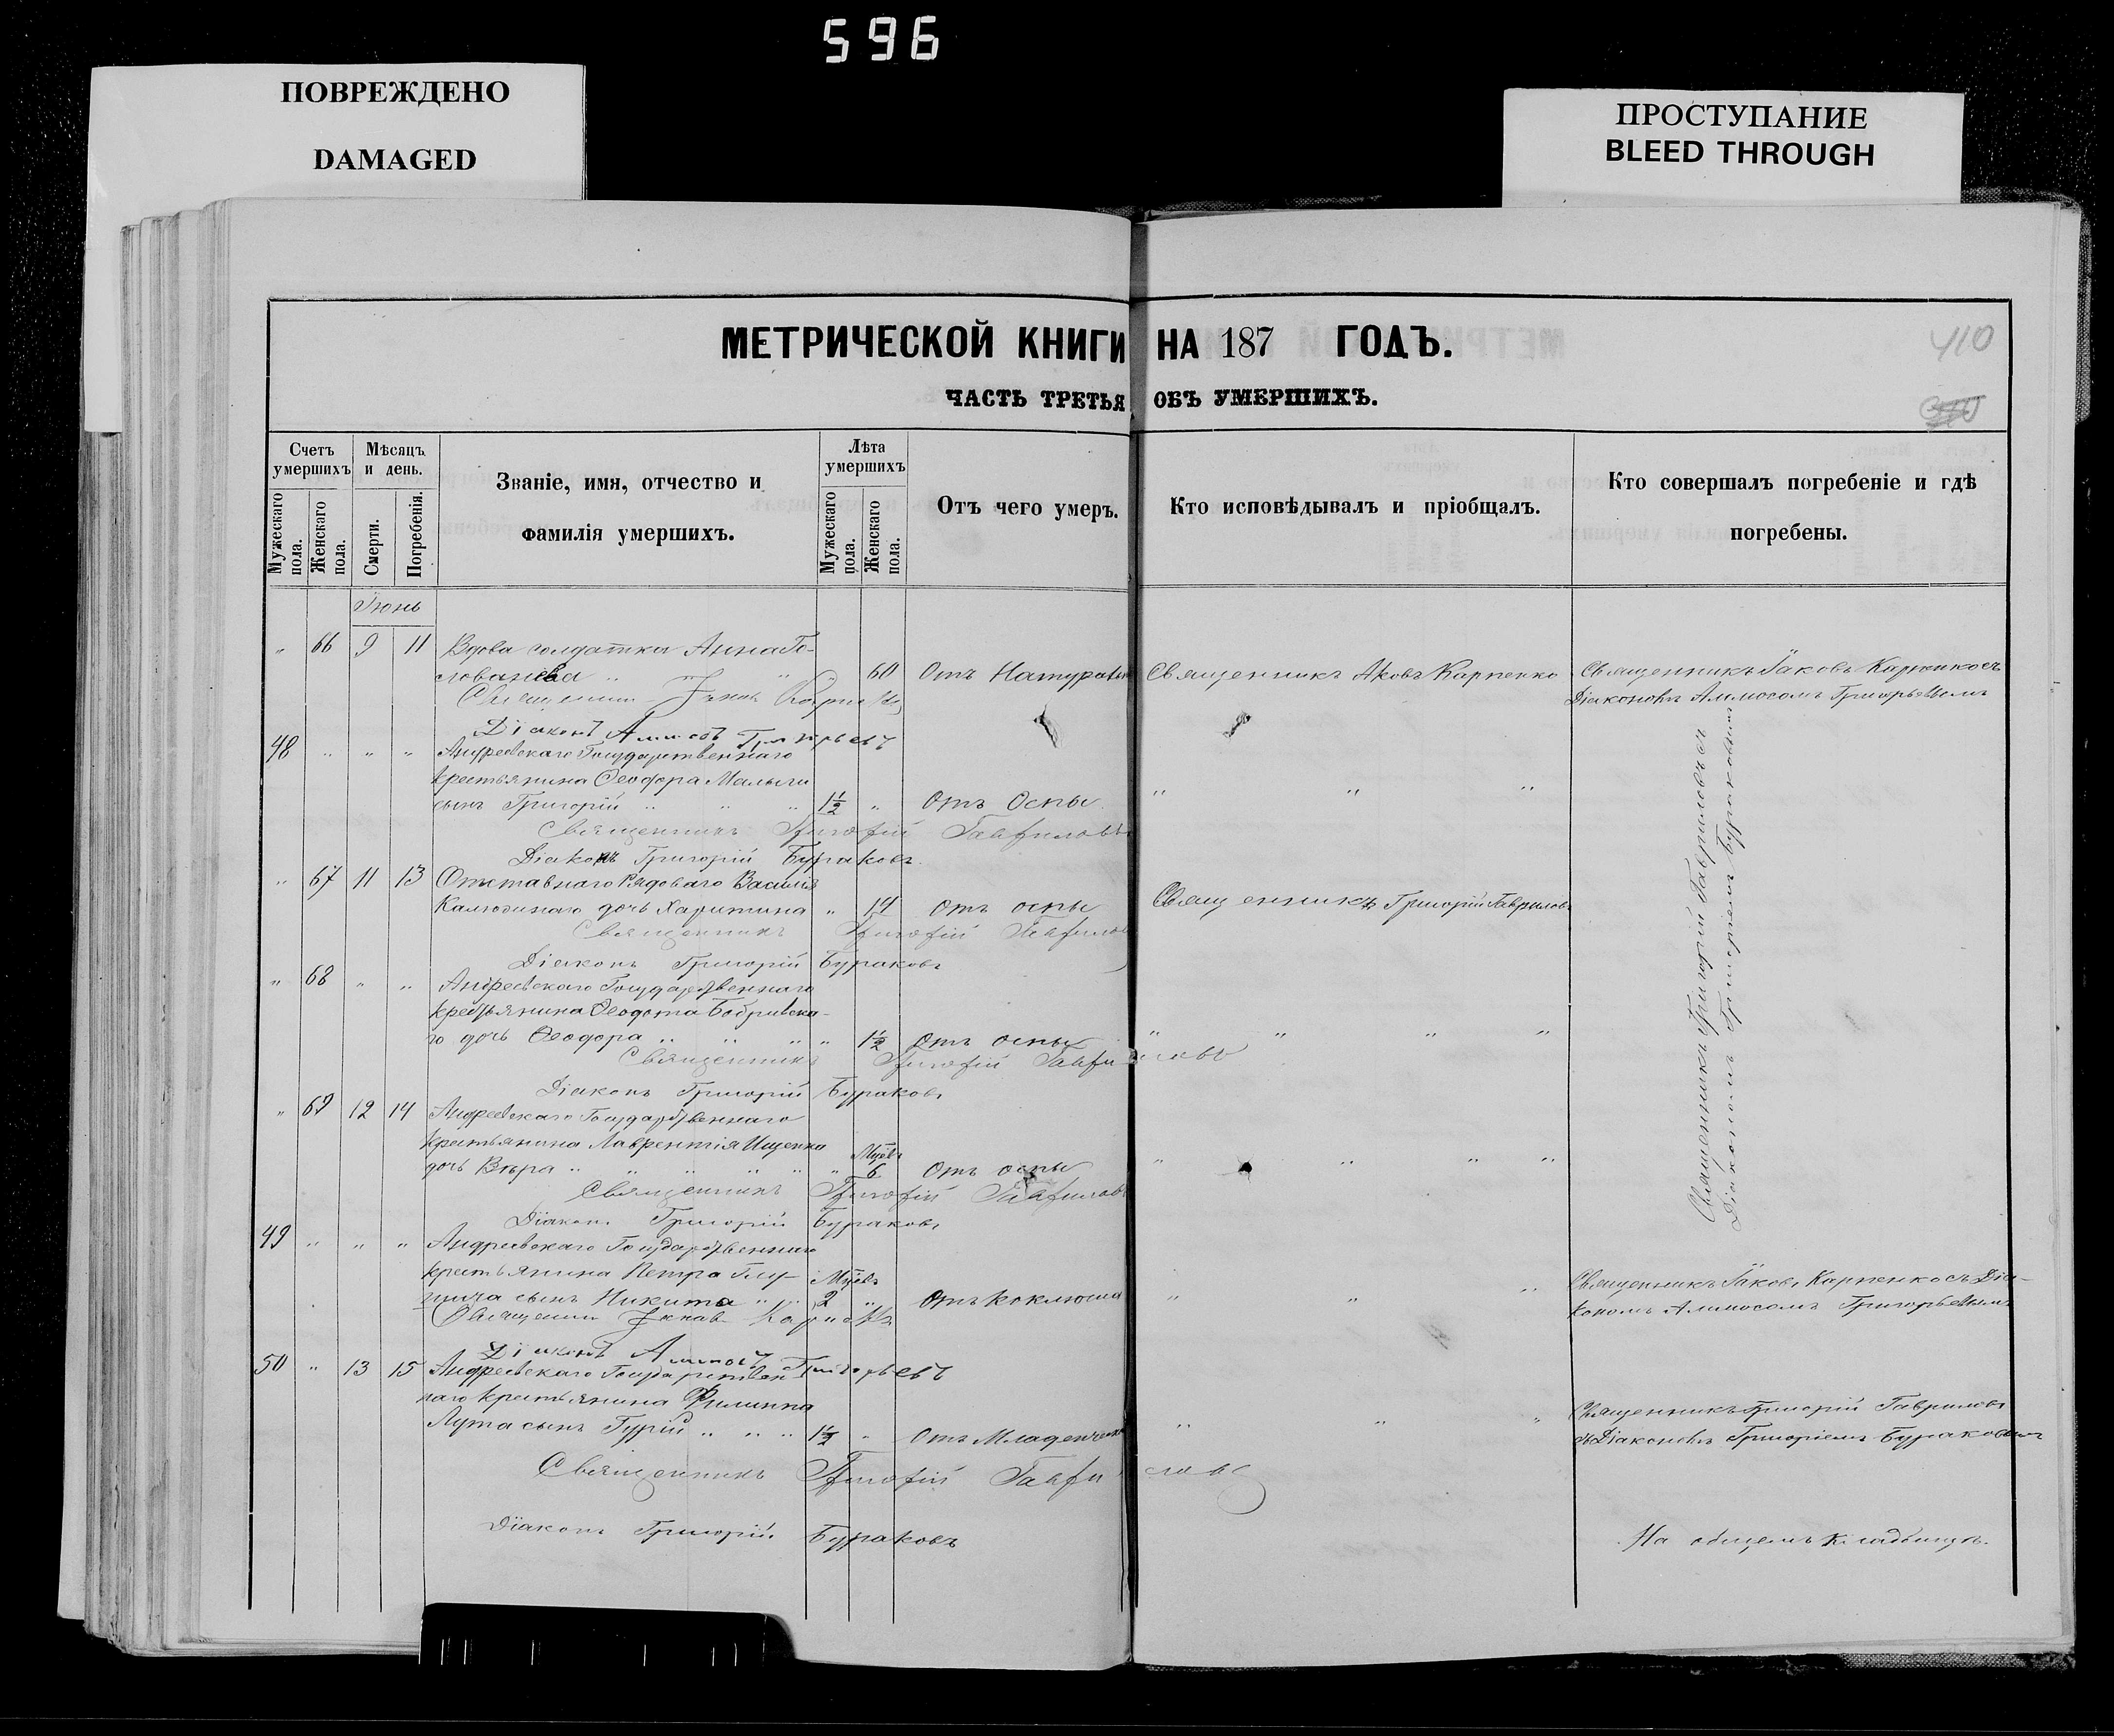 596
ПОВРЕЖДЕНО
DAMAGED
ПРОСТУПАНИЕ
BLEED THROUGH
МЕТРИЧЕСКОЙ КНИГИ НА 187 ГОДЪ.
410
ЧАСТЬ ТРЕТЬЯ ОБЪ УМЕРШИХЪ.
Счетъ умершихъ
Мужескаго пола.
Женскаго пола.
Мѣсяцъ и день.
Смерти.
Погребенія.
Званіе, имя, отчество и
фамилія умершихъ.
Лѣта умершихъ
Мужескаго пола.
Женскаго пола.
Отъ чего умеръ.
Кто исповѣдывалъ и пріобщалъ.
Кто совершалъ погребеніе и гдѣ
погребены.
Іюнь
" 66 9 11 Вдова солдатка Анна
60 Отъ Священникъ Яковъ Карпенко Священникъ Іаковъ Карпенко съ
Діакономъ Аммосомъ Григорьевымъ
Діаконъ Аммосъ Григорьевъ
48 " " " Андреевскаго Государственнаго
крестьянина Ѳеодора
сынъ Григорій " " " 1½ " Отъ Оспы " " "
Священникъ Григорій Гавриловъ
Діаконъ Григорій Бураковъ
" 67 11 13 Отставнаго Рядоваго Василія
дочь Харитина " 14 Отъ оспы Священникъ Григорій Гавриловъ
Священникъ Григорій Гавриловъ
Діаконъ Григорій Бураковъ
" 68 " " Андреевскаго Государственнаго
крестьянина Ѳеодота Бобривска-
го дочь Ѳеодора " " " " 1½ Отъ оспы " " " "
Священникъ Григорій Гавриловъ
Діаконъ Григорій Бураковъ
" 69 12 14 Андреевскаго Государственнаго
крестьянина Лаврентія Ищенка
дочь Вѣра " " " " " " 6 Отъ оспы " " " "
Священникъ Григорій Гавриловъ
Діаконъ Григорій Бураковъ
Священникъ Григорій Гавриловъ съ
Діакономъ Григоріемъ Бураковымъ
49 " " " Андреевскаго Государственнаго
крестьянина Петра
сынъ Никита " " 2 " Отъ коклюша " " "
Священникъ Іаковъ Карпенко съ Діа-
кономъ Аммосомъ Григорьевымъ
Діаконъ Аммосъ Григорьевъ
50 " 13 15 Андреевскаго Государствен
наго крестьянина Филиппа
Лута сынъ Гурій " " " 1½ " Отъ " " "
Священникъ Григорій Гавриловъ
съ Діакономъ Григоріемъ Бураковымъ
Священникъ Григорій Гавриловъ
Діаконъ Григорій Бураковъ
На общемъ кладбищѣ.